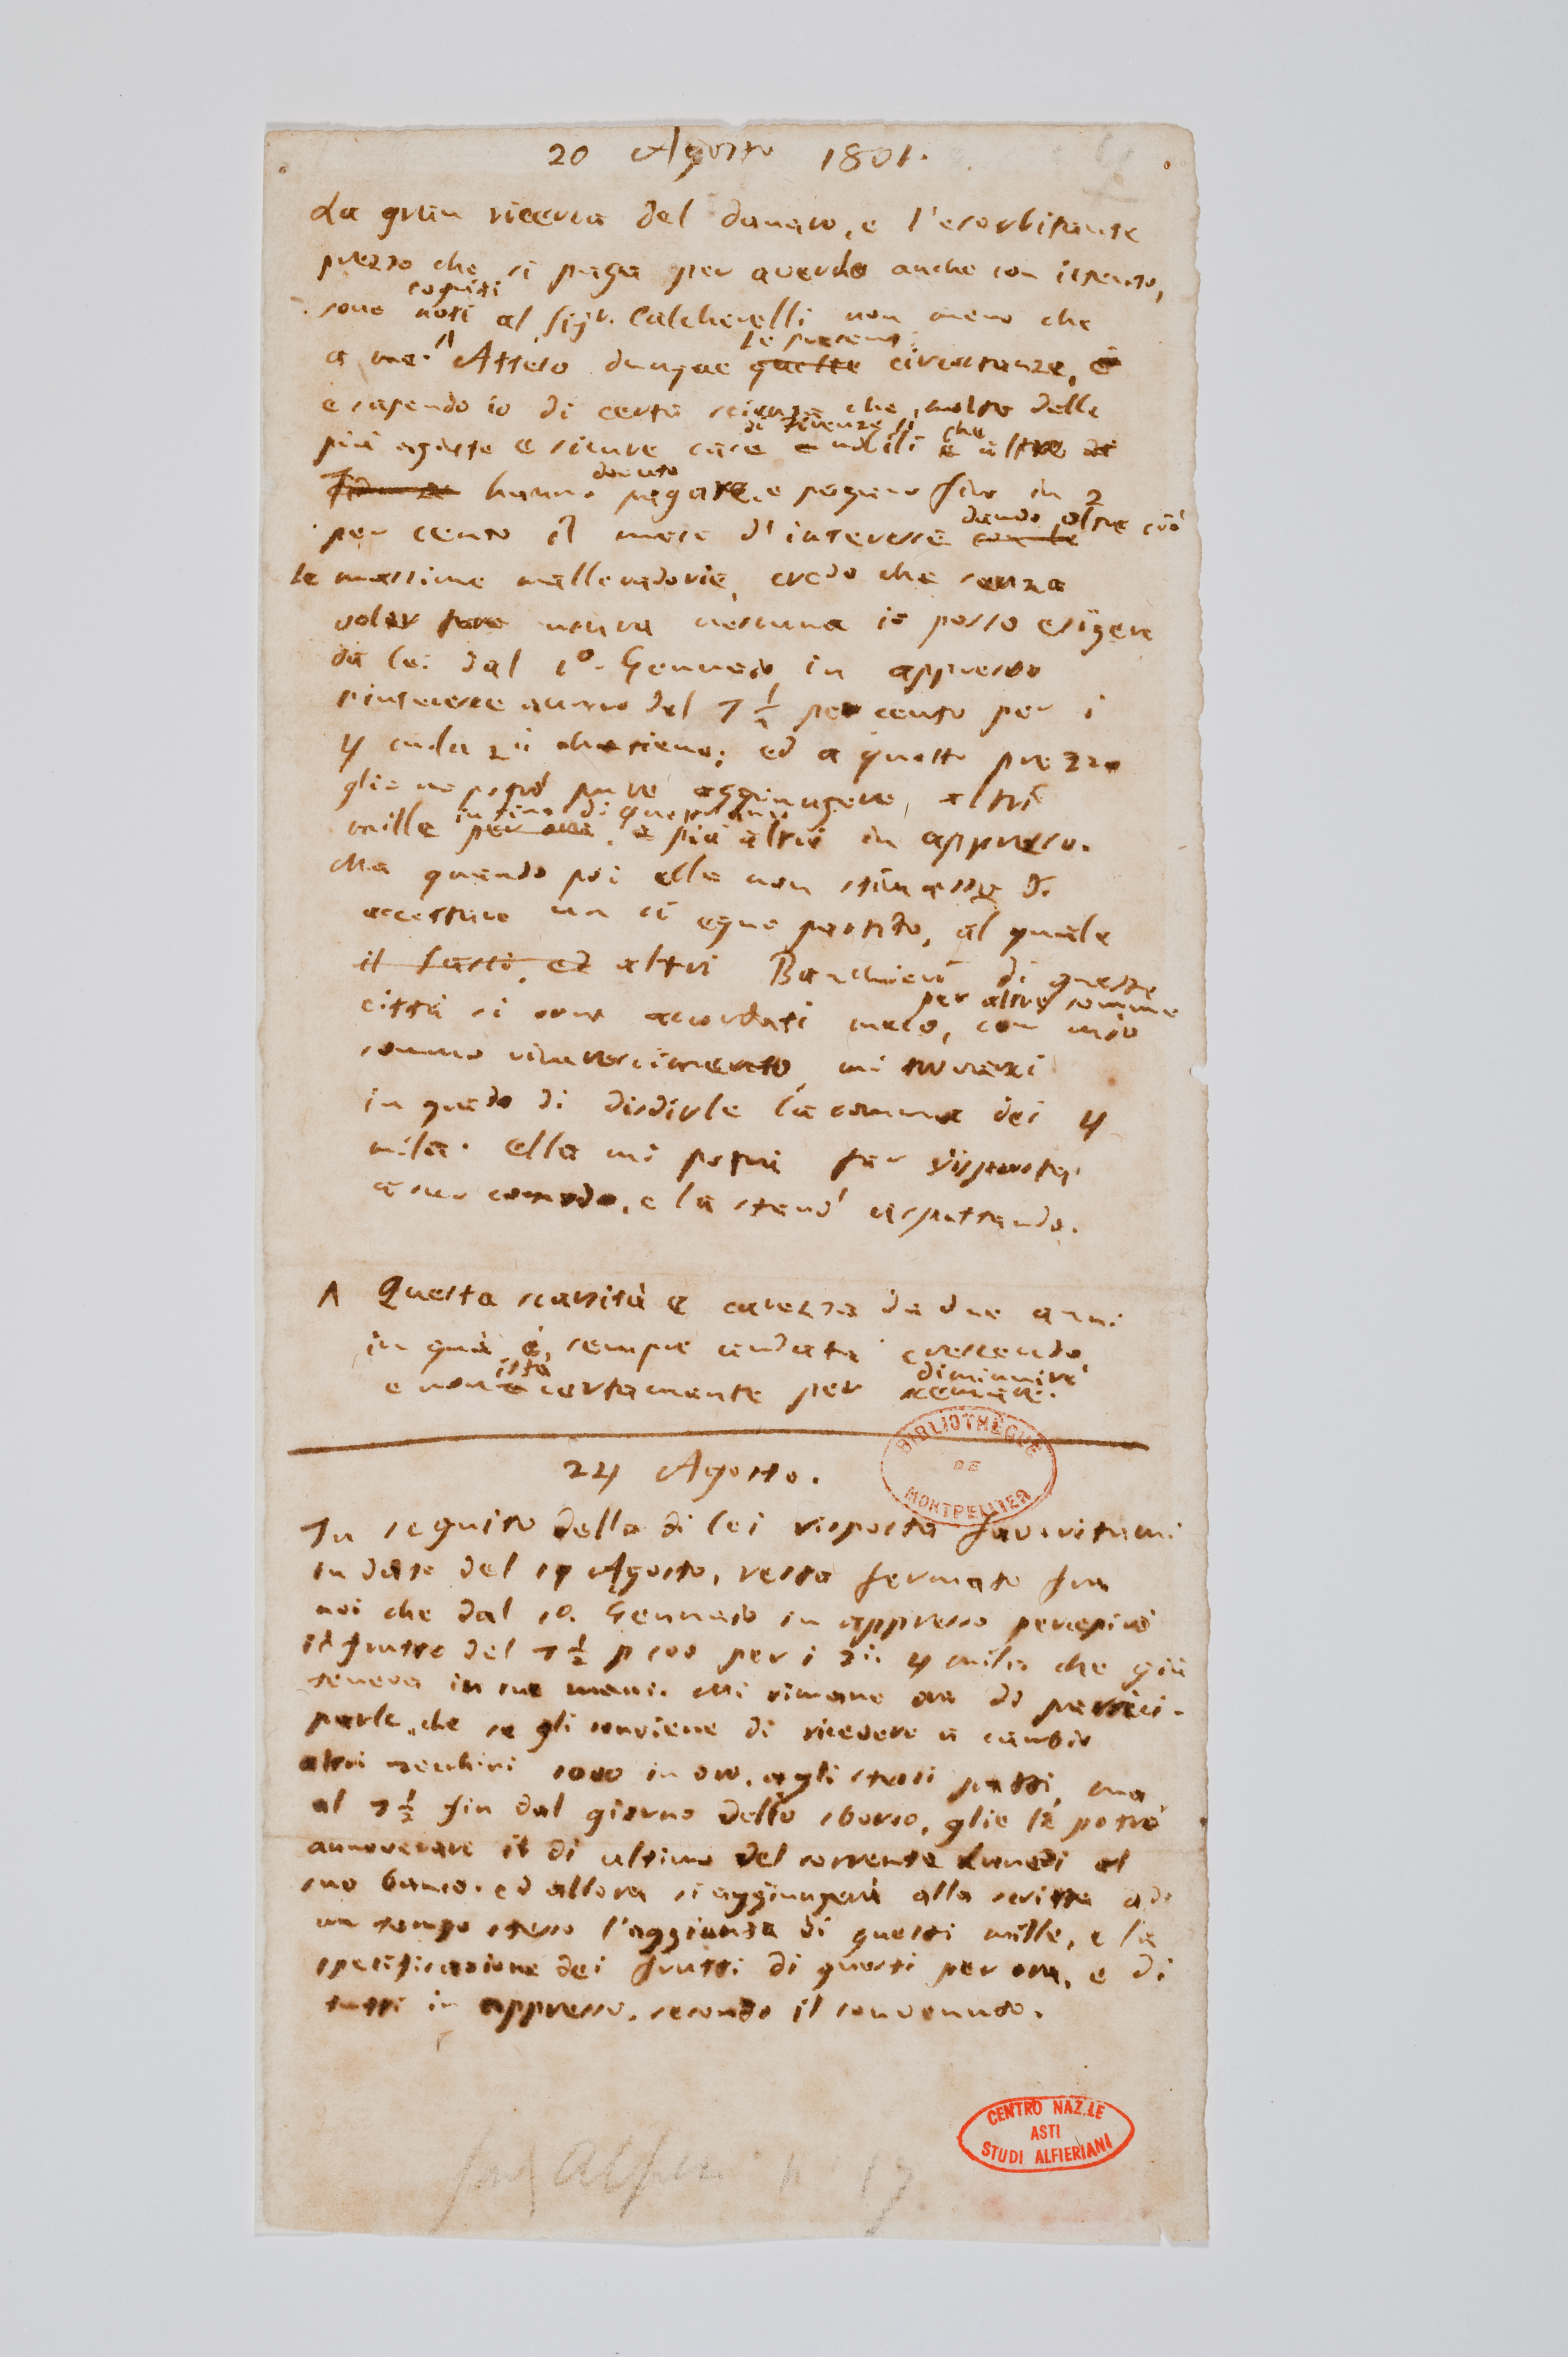 20 Agosto 1801.
La gran ricerca del danaro, e l'esorbitante
prezzo che si paga per averlo anche con istento,
cogniti
sono noti al Sigr. Calcherelli non meno che
le presenti
a me. Λ Atteso dunque queste circostanze, e
e sapendo io di certa scienza che molte delle
di Firenze sì che
più agiate e sicure case e nobili e altre di
dovuto
Firenze hanno pagare, e pagano fino in 2
dando oltre ciò
per cento il mese d'interesse con le
le massime mallevadorie, credo che senza
voler fare usura nessuna io posso esigere
da lei dal 1º. Gennaio in appresso
l'interesse annuo del 7 1/2 per cento per i
4 mila zii che tiene; ed a questo prezzo
glie ne potrò pure aggiungere, altri
in fine di quest'anno
mille per ora, e più altri in appresso.
Ma quando poi ella non stimasse di
accettare un sì equo partito, al quale
il altri Banchieri di questa
per altre somme
città si sono accordati meco, con mio
sommo rincrescimento, mi troverei
in grado di disdirle la somma dei 4
mila. Ella mi potrà far risposta
a suo comodo, e la starò aspettando.
Λ Questa scarsità e carezza da due anni
in quà è sempre andata crescendo,
istà diminuire
e non è certamente per scemare.
24 Agosto.
BIBLIOTHÈQUE
DE
MONTPELLIER
In seguito della di lei risposta favoritami
in data del 19 Agosto, resta fermato fra
noi che dal 1º. Gennaio in appresso percepirò
il frutto del 7 1/2 p 100 per i zii 4 mila che già
teneva in sue mani. Mi rimane ora di parteci-
parle, che se gli conviene di ricevere a cambio
altri zecchini 1000 in oro, agli stessi patti, ma
al 7 1/2 fin dal giorno dello sborso, glie li potrò
annoverare il dì ultimo del corrente Lunedì al
suo banco. ed allora si aggiungerà alla scritta ad
un tempo stesso l'aggiunta di questi mille, e la
specificazione dei frutti di questi per ora, e di
tutti in appresso, secondo il convenuto.
CENTRO NAZ.LE
ASTI
STUDI ALFIERIANI